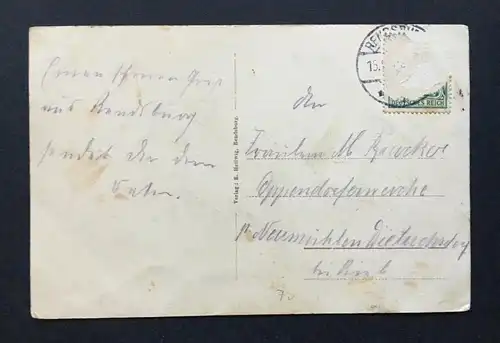 Einen schönen Gruß
aus Rendsburg
sendet Dir dein
Vater.
Verlag: R. Hartwig, Rendsburg.
RENDSBURG
15.
DEUTSCHES REICH
An
Fräulein M
Oppendorfermühle
p. Neumühlen Dietrichsdorf
bei Kiel